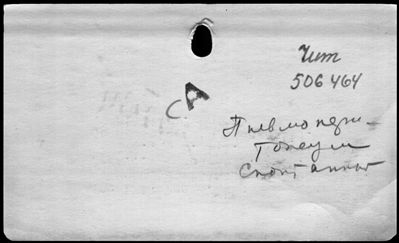 Чит
506464
СА
Пневмопери-
тонеум
спонтанный